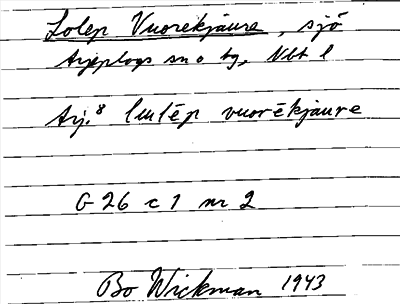 Lolep Vuorekjaure, sjö
Arjeplogs sn o tg, Nbt l
Arj.⁸ lulēp vuorēkjaure
G 26 c 1 nr 2
Bo Wickman 1943